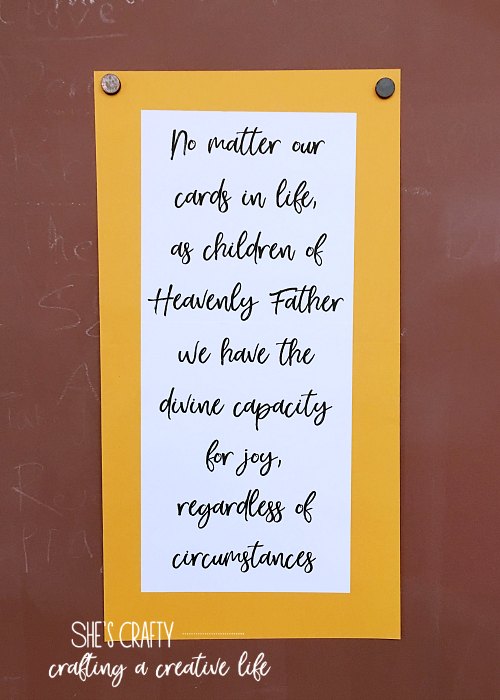 No matter our
cards in life,
as children of
Heavenly Father
we have the
divine capacity
for joy,
regardless of
circumstances
SHE'S CRAFTY
crafting a creative life